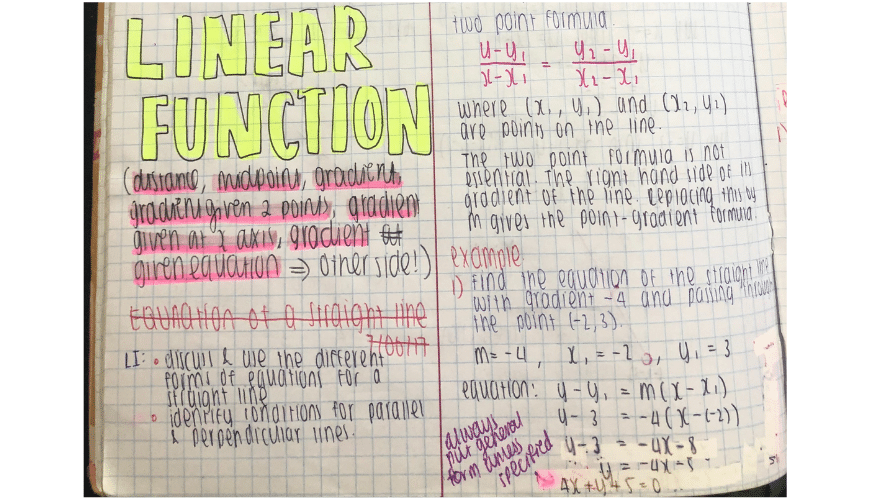 LINEAR
FUNCTION
(distance, midpoint, gradient,
gradient given 2 points, gradient
given at 2 axis, gradient
given equation ⇒ other side!)
Equation of a straight line
7/06/17
LI: • discuss & use the different
forms of equations for a
straight line
• identify conditions for parallel
& perpendicular lines.
two point formula.
y-y₁/x-x₁ = y₂-y₁/x₂-x₁
where (x₁, y₁) and (x₂, y₂)
are points on the line.
The two point formula is not
essential. The right hand side of its
gradient of the line. Replacing this by
m gives the point-gradient formula.
example
1) Find the equation of the straight line
with gradient -4 and passing through
the point (-2,3).
m=-4, x₁=-2, y₁=3
equation: y-y₁ = m(x-x₁)
y-3 = -4(x-(-2))
y-3 = -4x-8
y = -4x-5
4x+y+5=0
always
put general
form unless
specified